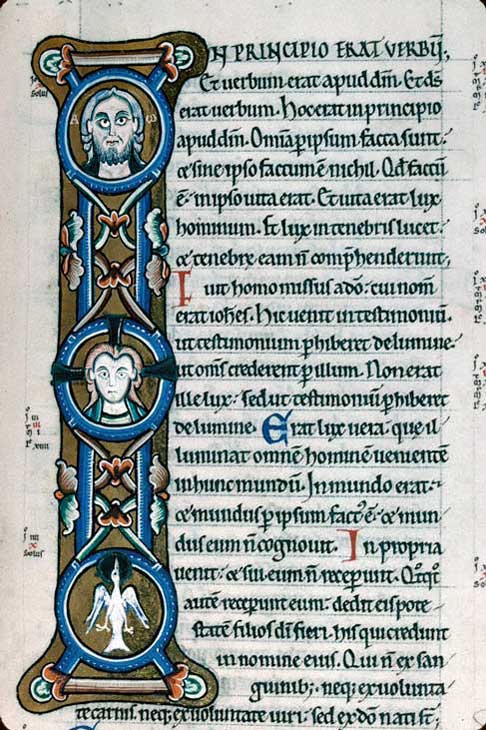 A ω
IN PRINCIPIO ERAT VERBŪ,
Et uerbum erat apud dm̄. Et ds̄
erat uerbum. Hoc erat in principio
apud dm̄. Omīa p ipsum facta sunt.
⁊ sine ipso factum ē nichil. Qd̄ factū
ē. in ipso uita erat. Et uita erat lux
hominum. Et lux in tenebris lucet.
⁊ tenebre eam n̄ comp̄henderunt.
Fuit homo missus a dō. cui nom̄
erat ioħes. Hic uenit in testimoniū.
ut testimonium phiberet de lumine
ut om̄s crederent p illum. Non erat
ille lux. sed ut testimoniū phiberet
de lumine. Erat lux uera. que il
luminat omnē hominē uenientē
in hunc mundū. In mundo erat.
⁊ mundus p ipsum fact' ē. ⁊ mun
dus eum n̄ cognouit. In propria
uenit. ⁊ sui eum n̄ receperunt. Qͦtqͦt
autē receperunt eum. dedit eis pote
statē filios dī fieri. his qui credunt
in nomine eius. Qui n̄ ex san
guinib;. neq; ex uolunta
te carnis. neq; ex uoluntate uiri. sed ex dō nati st̄.